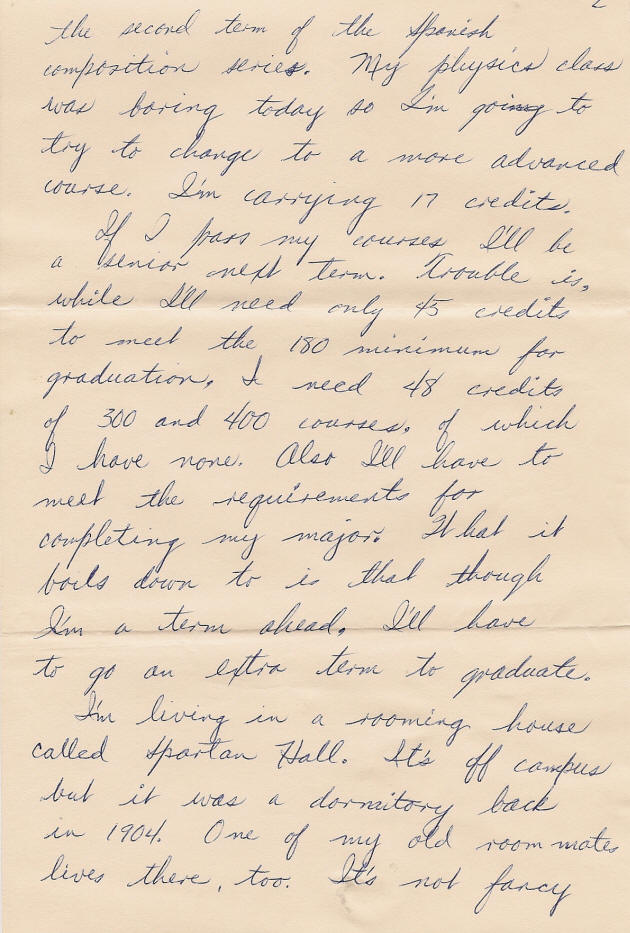 2
the second term of the Spanish
composition series. My physics class
was boring today so I'm going to
try to change to a more advanced
course. I'm carrying 17 credits.
If I pass my courses I'll be
a senior next term. Trouble is,
while I'll need only 45 credits
to meet the 180 minimum for
graduation, I need 48 credits
of 300 and 400 courses, of which
I have none. Also I'll have to
meet the requirements for
completing my major. What it
boils down to is that though
I'm a term ahead, I'll have
to go an extra term to graduate.
I'm living in a rooming house
called Spartan Hall. It's off campus
but it was a dormitory back
in 1904. One of my old room mates
lives there, too. It's not fancy